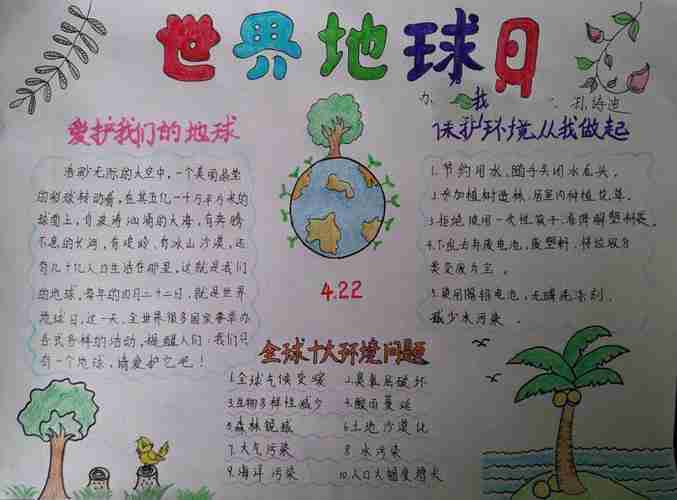 世界地球日
爱护我们的地球
浩渺无际的太空中，一个美丽晶莹
的彩球转动着，在其五亿一千万平方米的
球面上，有波涛汹涌的大海，有奔腾
不息的长河，有峻岭，有冰山沙漠，还
有几十亿人口生活在那里，这就是我们
的地球，每年的四月二十二日，就是世界
地球日，这一天，全世界很多国家要举办
各式各样的活动，提醒人们：我们只
有一个地球，请爱护它吧！
4.22
保护环境从我做起
1.节约用水，随手关闭水龙头。
2.参加植树造林，居室内种植花草。
3.拒绝使用一次性筷子、难降解塑料袋。
4.不乱丢弃废电池，废塑料，将垃圾分
类变废为宝。
5.使用隔铅电池，无磷洗涤剂，
减少水污染。
全球十大环境问题
1.全球气候变暖 2.臭氧层破坏
3.生物多样性减少 4.酸雨蔓延
5.森林锐减 6.土地沙漠化
7.大气污染 8.水污染
9.海洋污染 10.人口大幅度增长